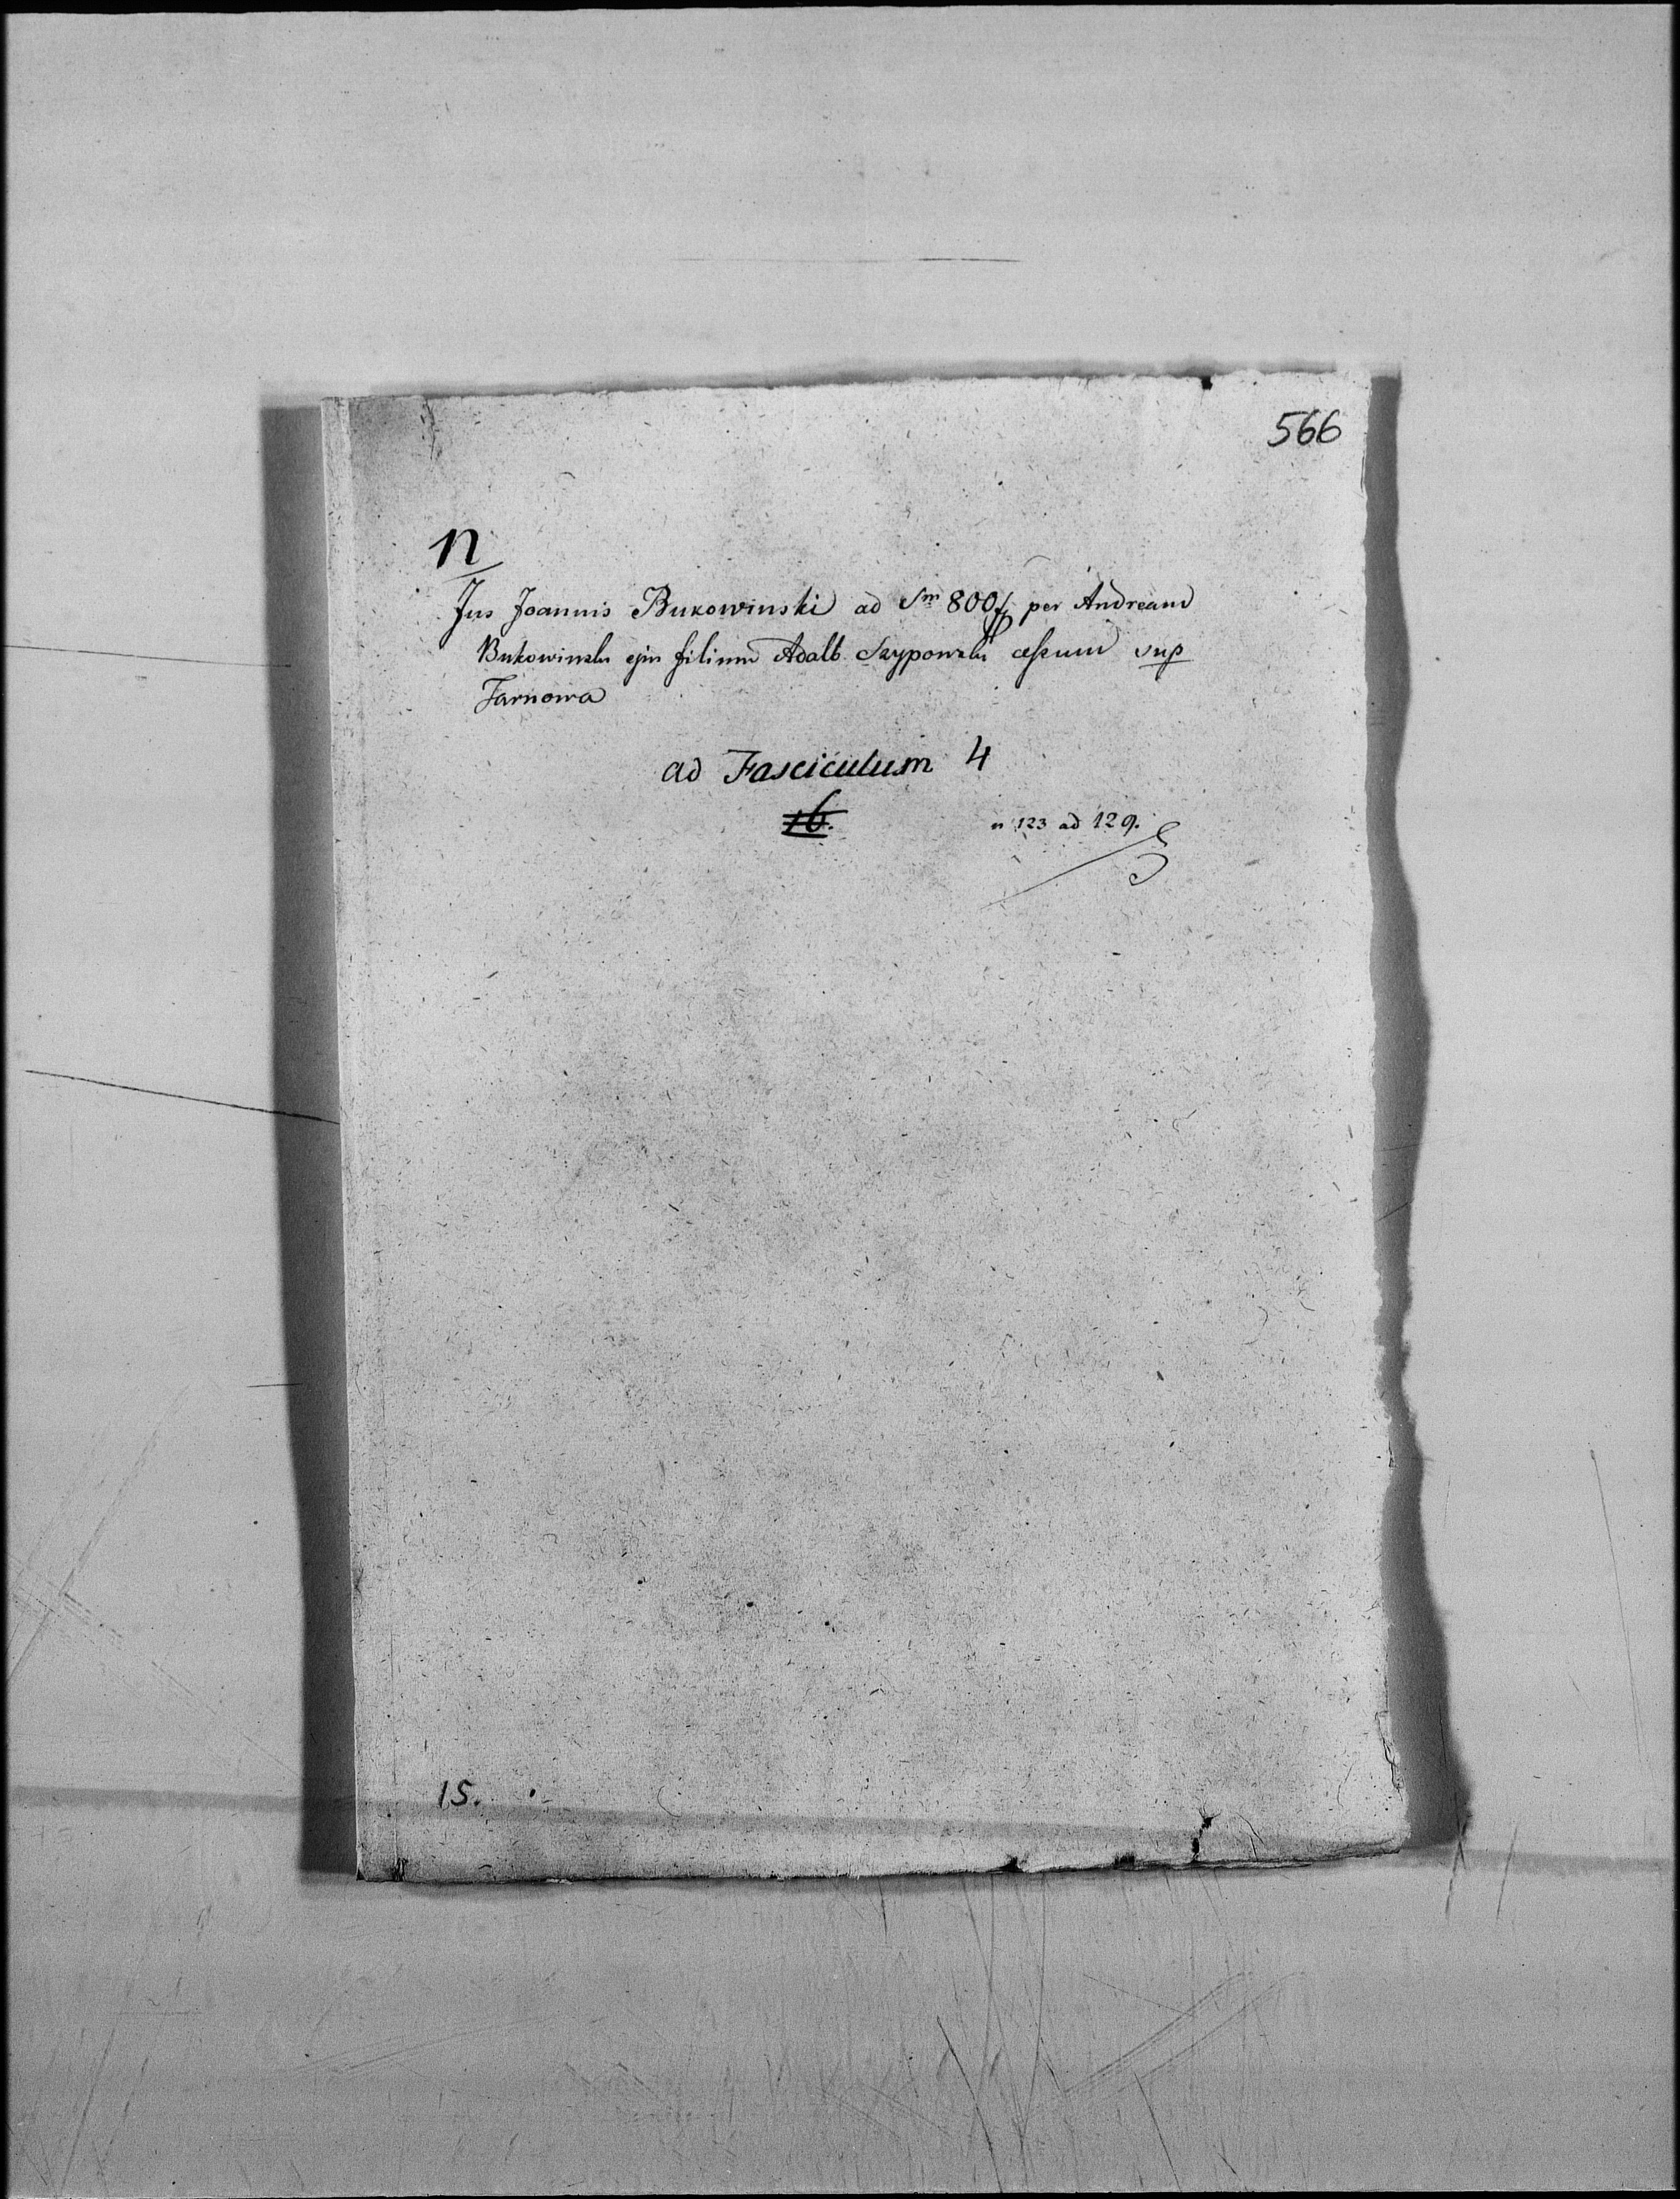 566
n
Jus Joannis Bukowinski ad Sm 800 f per Andream
Bukowinski ejus filium Adalb. Szyponski cessum sup
Tarnowa
ad Fasciculum 4
16.
n 123 ad 129.
15.